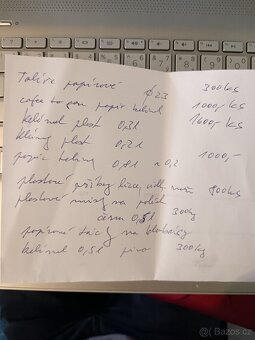 Talíře papírové ø 23 300 ks
cafee to gou papír kelímek 1000,- ks
kelímek plast 0,3l 1600,- ks
kelímky plast 0,2l
papír kelímky 0,1l a 0,2 1000,-
plastové příbory lžíce, vidl, nože 800ks
plastové misky na polévk
černá 0,5l 300kg
papírové tácky na
kelímek 0,5l pivo 300kg
Bazos.cz